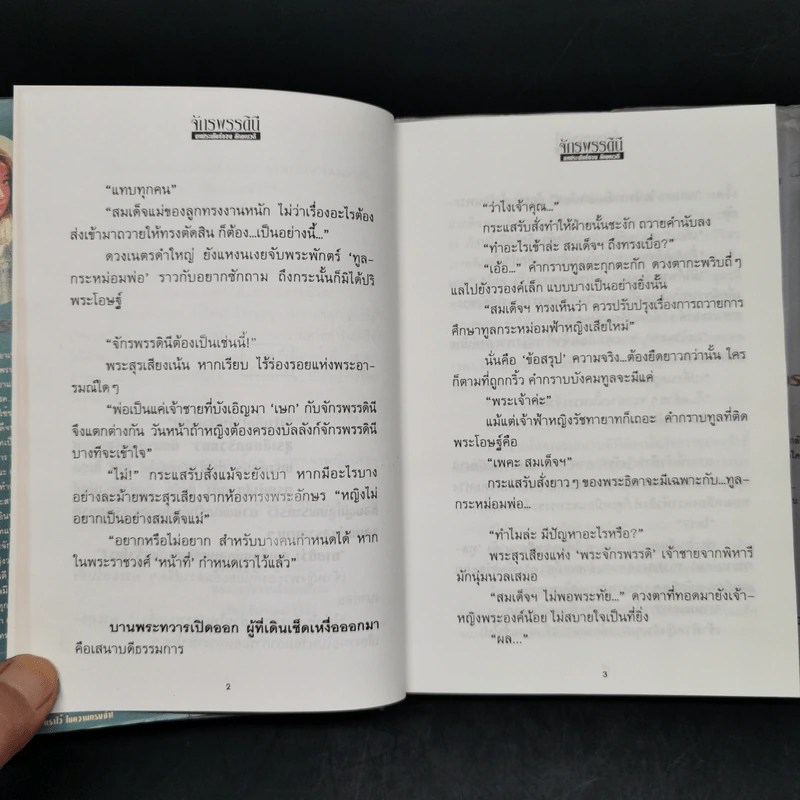 จักรพรรดินี
"แทบทุกคน"
"สมเด็จแม่ของลูกทรงงานหนัก ไม่ว่าเรื่องอะไรต้อง
ส่งเข้ามาถวายให้ทรงตัดสิน ก็ต้อง...เป็นอย่างนี้..."
ดวงเนตรดำใหญ่ ยังแหงนเงยจับพระพักตร์ 'ทูล-
กระหม่อมพ่อ' ราวกับอยากซักถาม ถึงกระนั้นก็มิได้ปริ
พระโอษฐ์
"จักรพรรดินีต้องเป็นเช่นนี้!"
พระสุรเสียงเน้น หากเรียบ ไร้ร่องรอยแห่งพระอา-
รมณ์ใดๆ
"พ่อเป็นแค่เจ้าชายที่บังเอิญมา 'เษก' กับจักรพรรดินี
จึงแตกต่างกัน วันหน้าถ้าหญิงต้องครองบัลลังก์จักรพรรดินี
บางทีจะเข้าใจ"
"ไม่!" กระแสรับสั่งแม้จะยังเบา หากมีอะไรบาง
อย่างละม้ายพระสุรเสียงจากห้องทรงพระอักษร "หญิงไม่
อยากเป็นอย่างสมเด็จแม่"
"อยากหรือไม่อยาก สำหรับบางคนกำหนดได้ หาก
ในพระราชวงศ์ 'หน้าที่' กำหนดเราไว้แล้ว"
บานพระทวารเปิดออก ผู้ที่เดินเช็ดเหงื่อออกมา
คือเสนาบดีธรรมการ
2
จักรพรรดินี
"ว่าไงเจ้าคุณ..."
กระแสรับสั่งทำให้ฝ่ายนั้นชะงัก ถวายคำนับลง
"ทำอะไรเข้าล่ะ สมเด็จฯ ถึงทรงเบื่อ?"
"เอ้อ..." คำกราบทูลตะกุกตะกัก ดวงตากะพริบถี่ๆ
แลไปยังวรองค์เล็ก แบบบางเป็นอย่างยิ่งนั้น
"สมเด็จฯ ทรงเห็นว่า ควรปรับปรุงเรื่องการถวายการ
ศึกษาทูลกระหม่อมฟ้าหญิงเสียใหม่"
นั่นคือ 'ข้อสรุป' ความจริง...ต้องยืดยาวกว่านั้น ใคร
ก็ตามที่ถูกกริ้ว คำกราบบังคมทูลจะมีแค่
"พระเจ้าค่ะ"
แม้แต่เจ้าฟ้าหญิงรัชทายาทก็เถอะ คำกราบทูลที่ติด
พระโอษฐ์คือ
"เพคะ สมเด็จฯ"
กระแสรับสั่งยาวๆ ของพระธิดาจะมีเฉพาะกับ...ทูล-
กระหม่อมพ่อ...
"ทำไมล่ะ มีปัญหาอะไรหรือ?"
พระสุรเสียงแห่ง 'พระจักรพรรดิ' เจ้าชายจากพิหารี
มักนุ่มนวลเสมอ
"สมเด็จฯ ไม่พอพระทัย..." ดวงตาที่ทอดมายังเจ้า-
หญิงพระองค์น้อย ไม่สบายใจเป็นที่ยิ่ง
"ผล..."
3